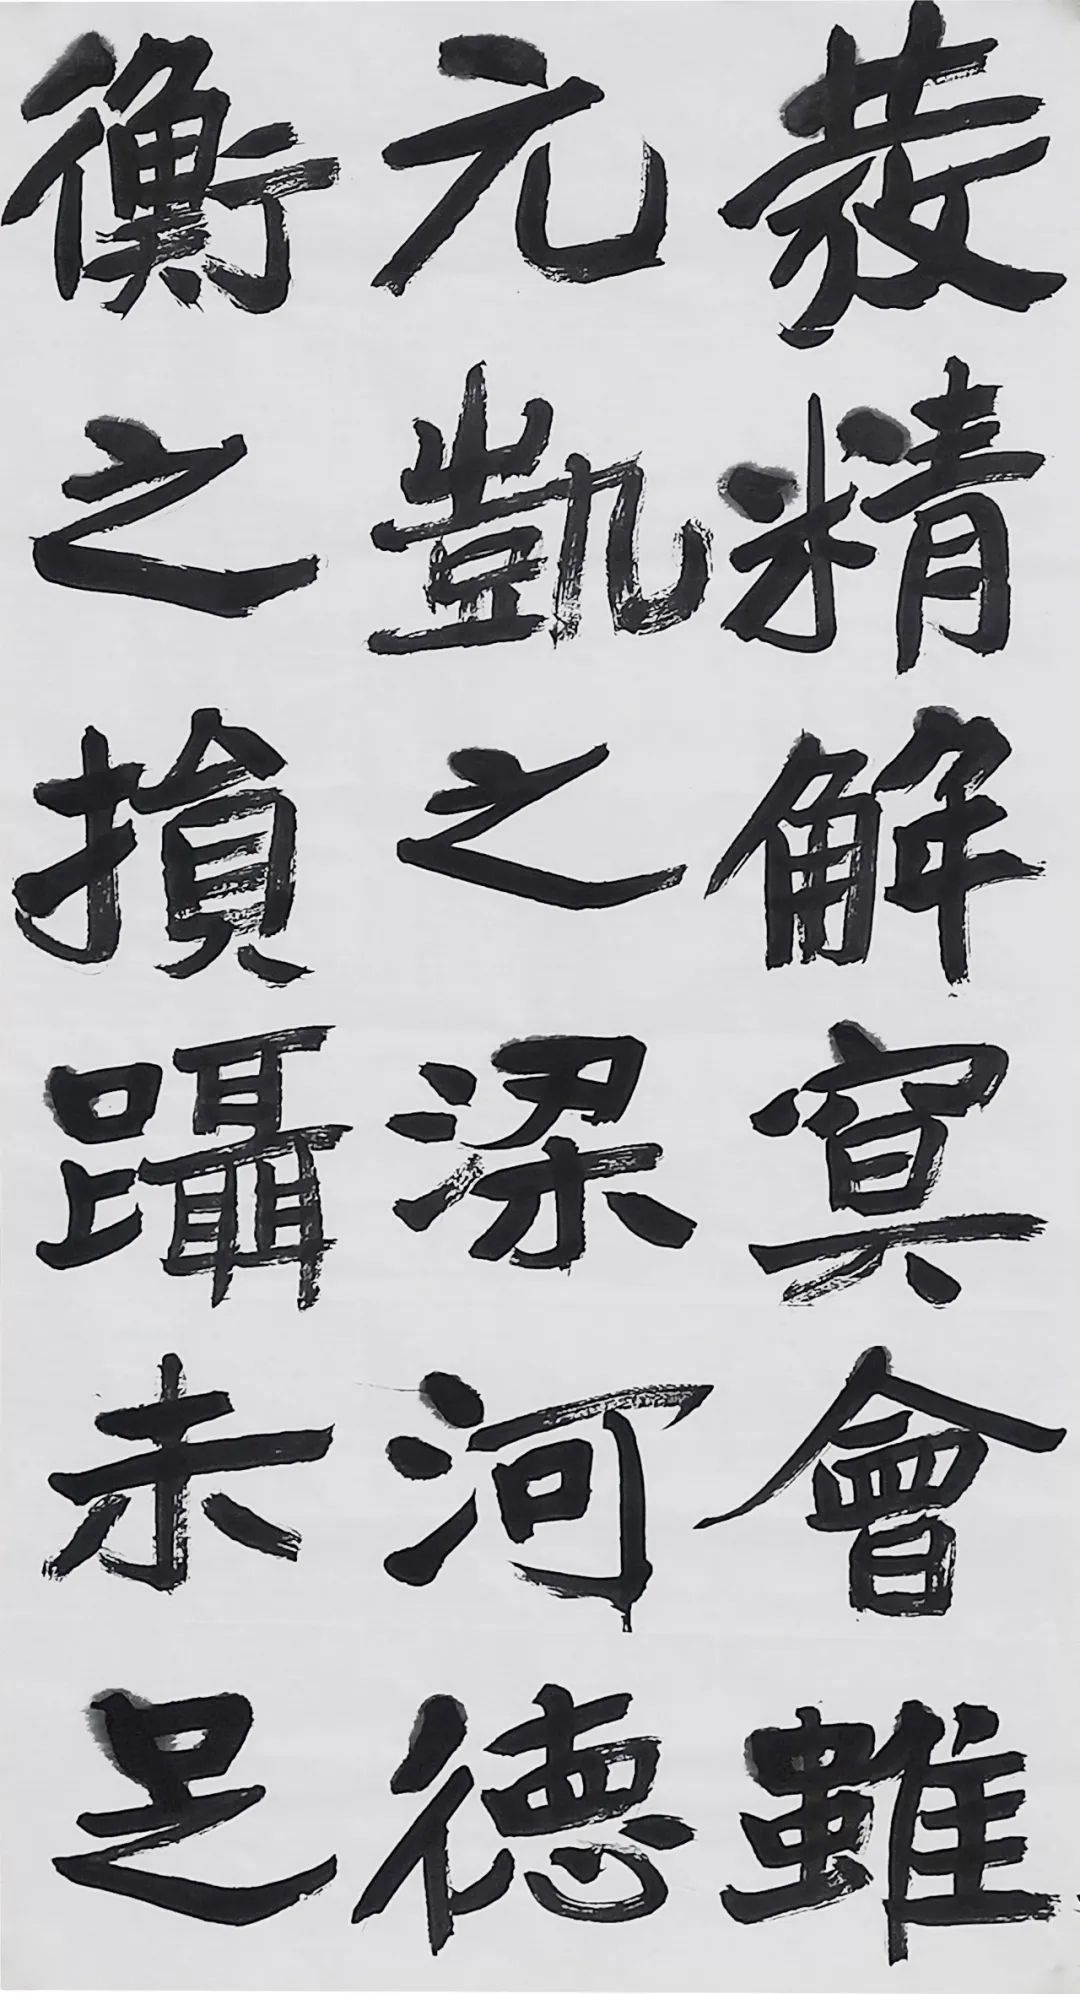 發精解冥會雖
元凱之梁河德
衡之損躡未足